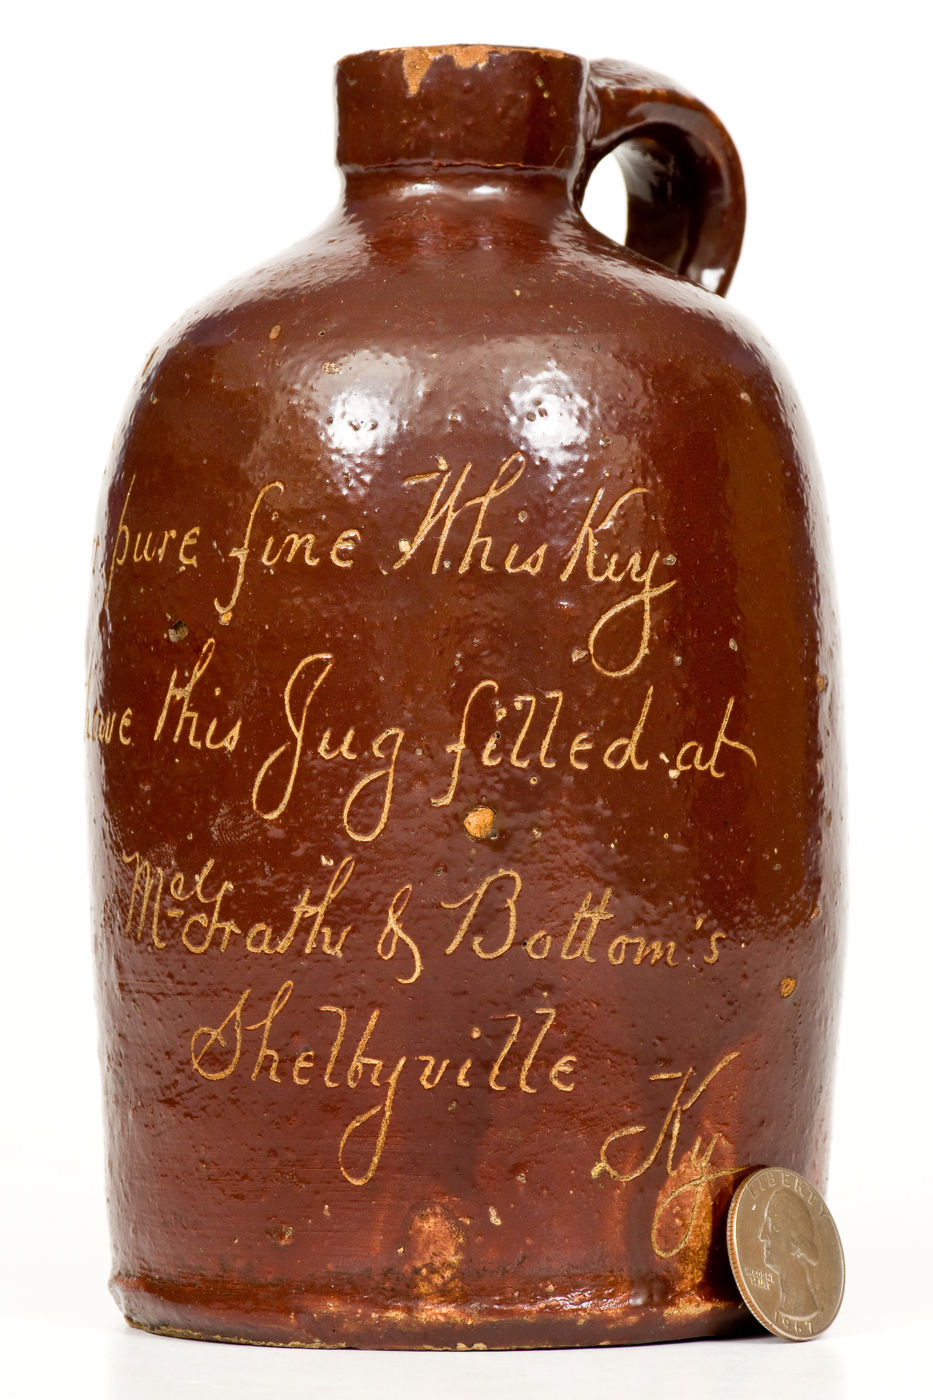 pure fine Whiskey
have this Jug filled at
McGrath & Bottom's
Shelbyville
Ky
LIBERTY
1967